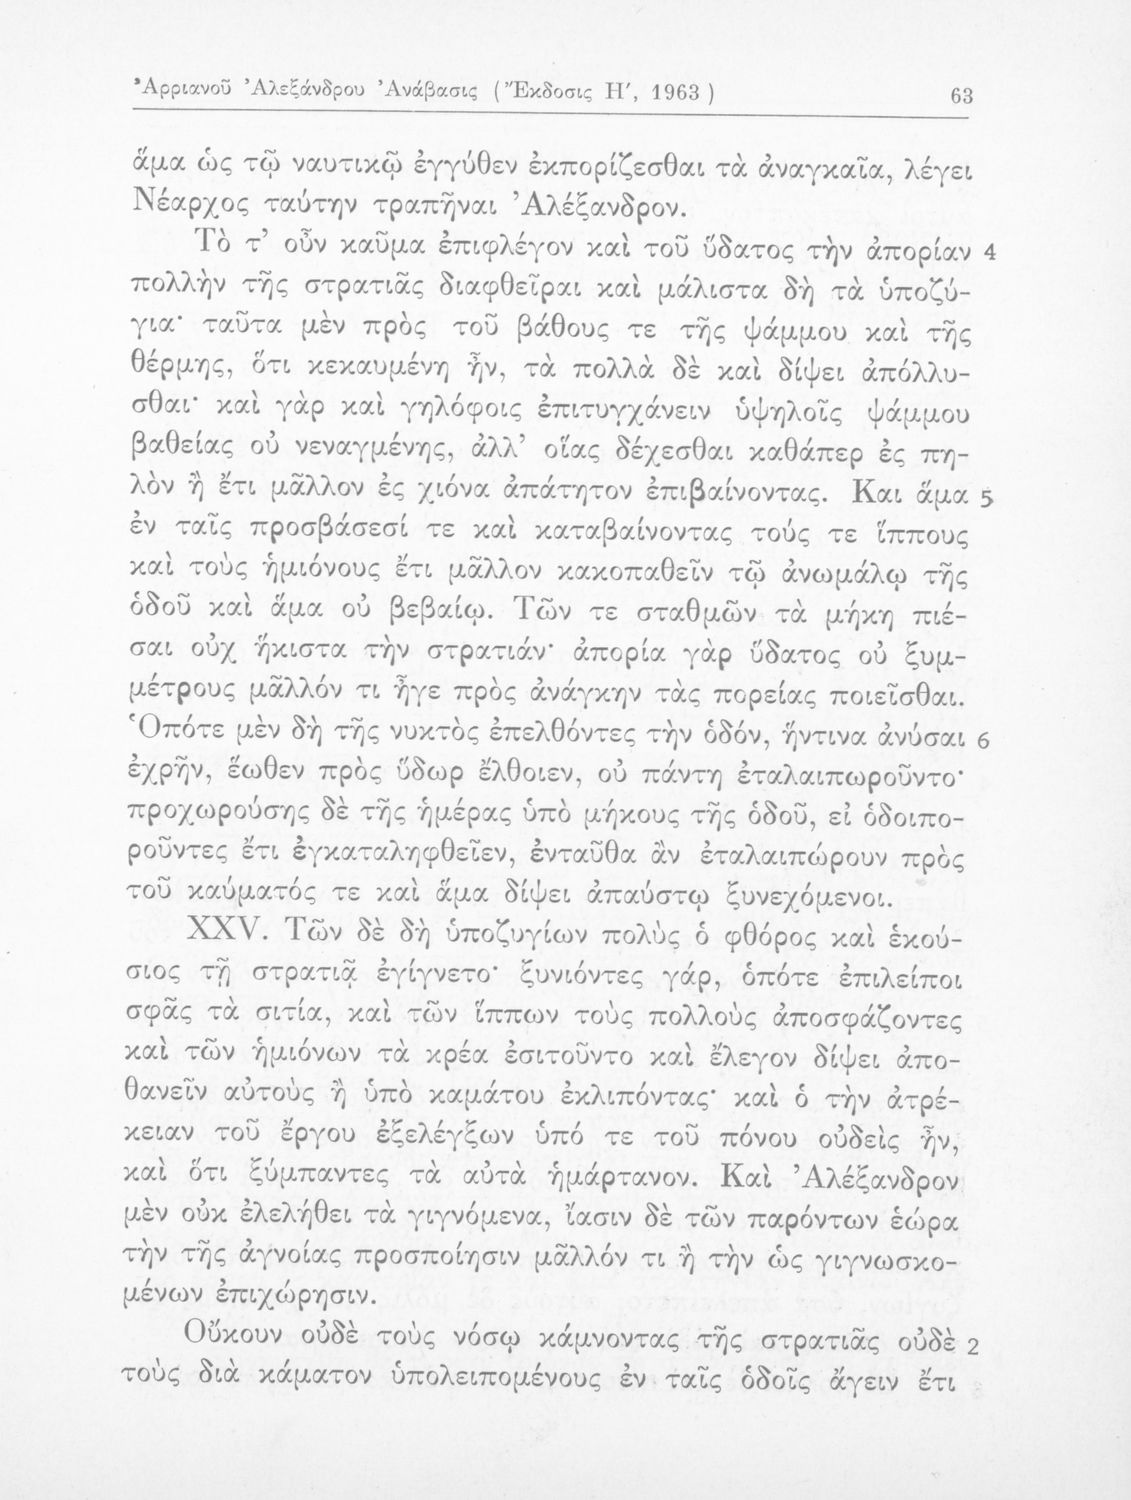 Ἀρριανοῦ Ἀλεξάνδρου Ἀνάβασις (Ἔκδοσις Η′, 1963) 63
ἅμα ὡς τῷ ναυτικῷ ἐγγύθεν ἐκπορίζεσθαι τὰ ἀναγκαῖα, λέγει
Νέαρχος ταύτην τραπῆναι Ἀλέξανδρον.
Τὸ τ’ οὖν καῦμα ἐπιφλέγον καὶ τοῦ ὕδατος τὴν ἀπορίαν 4
πολλὴν τῆς στρατιᾶς διαφθεῖραι καὶ μάλιστα δὴ τὰ ὑποζύ-
για· ταῦτα μὲν πρὸς τοῦ βάθους τε τῆς ψάμμου καὶ τῆς
θέρμης, ὅτι κεκαυμένη ἦν, τὰ πολλὰ δὲ καὶ δίψει ἀπόλλυ-
σθαι· καὶ γὰρ καὶ γηλόφοις ἐπιτυγχάνειν ὑψηλοῖς ψάμμου
βαθείας οὐ νεναγμένης, ἀλλ’ οἵας δέχεσθαι καθάπερ ἐς πη-
λὸν ἢ ἔτι μᾶλλον ἐς χιόνα ἀπάτητον ἐπιβαίνοντας. Και ἅμα 5
ἐν ταῖς προσβάσεσί τε καὶ καταβαίνοντας τούς τε ἵππους
καὶ τοὺς ἡμιόνους ἔτι μᾶλλον κακοπαθεῖν τῷ ἀνωμάλῳ τῆς
ὁδοῦ καὶ ἅμα οὐ βεβαίῳ. Τῶν τε σταθμῶν τὰ μήκη πιέ-
σαι οὐχ ἥκιστα τὴν στρατιάν· ἀπορία γὰρ ὕδατος οὐ ξυμ-
μέτρους μᾶλλόν τι ἦγε πρὸς ἀνάγκην τὰς πορείας ποιεῖσθαι.
Ὁπότε μὲν δὴ τῆς νυκτὸς ἐπελθόντες τὴν ὁδόν, ἥντινα ἀνύσαι 6
ἐχρῆν, ἕωθεν πρὸς ὕδωρ ἔλθοιεν, οὐ πάντη ἐταλαιπωροῦντο·
προχωρούσης δὲ τῆς ἡμέρας ὑπὸ μήκους τῆς ὁδοῦ, εἰ ὁδοιπο-
ροῦντες ἔτι ἐγκαταληφθεῖεν, ἐνταῦθα ἂν ἐταλαιπώρουν πρὸς
τοῦ καύματός τε καὶ ἅμα δίψει ἀπαύστῳ ξυνεχόμενοι.
XXV. Τῶν δὲ δὴ ὑποζυγίων πολὺς ὁ φθόρος καὶ ἑκού-
σιος τῇ στρατιᾷ ἐγίγνετο· ξυνιόντες γάρ, ὁπότε ἐπιλείποι
σφᾶς τὰ σιτία, καὶ τῶν ἵππων τοὺς πολλοὺς ἀποσφάζοντες
καὶ τῶν ἡμιόνων τὰ κρέα ἐσιτοῦντο καὶ ἔλεγον δίψει ἀπο-
θανεῖν αὐτοὺς ἢ ὑπὸ καμάτου ἐκλιπόντας· καὶ ὁ τὴν ἀτρέ-
κειαν τοῦ ἔργου ἐξελέγξων ὑπό τε τοῦ πόνου οὐδεὶς ἦν,
καὶ ὅτι ξύμπαντες τὰ αὐτὰ ἡμάρτανον. Καὶ Ἀλέξανδρον
μὲν οὐκ ἐλελήθει τὰ γιγνόμενα, ἴασιν δὲ τῶν παρόντων ἑώρα
τὴν τῆς ἀγνοίας προσποίησιν μᾶλλόν τι ἢ τὴν ὡς γιγνωσκο-
μένων ἐπιχώρησιν.
Οὔκουν οὐδὲ τοὺς νόσῳ κάμνοντας τῆς στρατιᾶς οὐδὲ 2
τοὺς διὰ κάματον ὑπολειπομένους ἐν ταῖς ὁδοῖς ἄγειν ἔτι